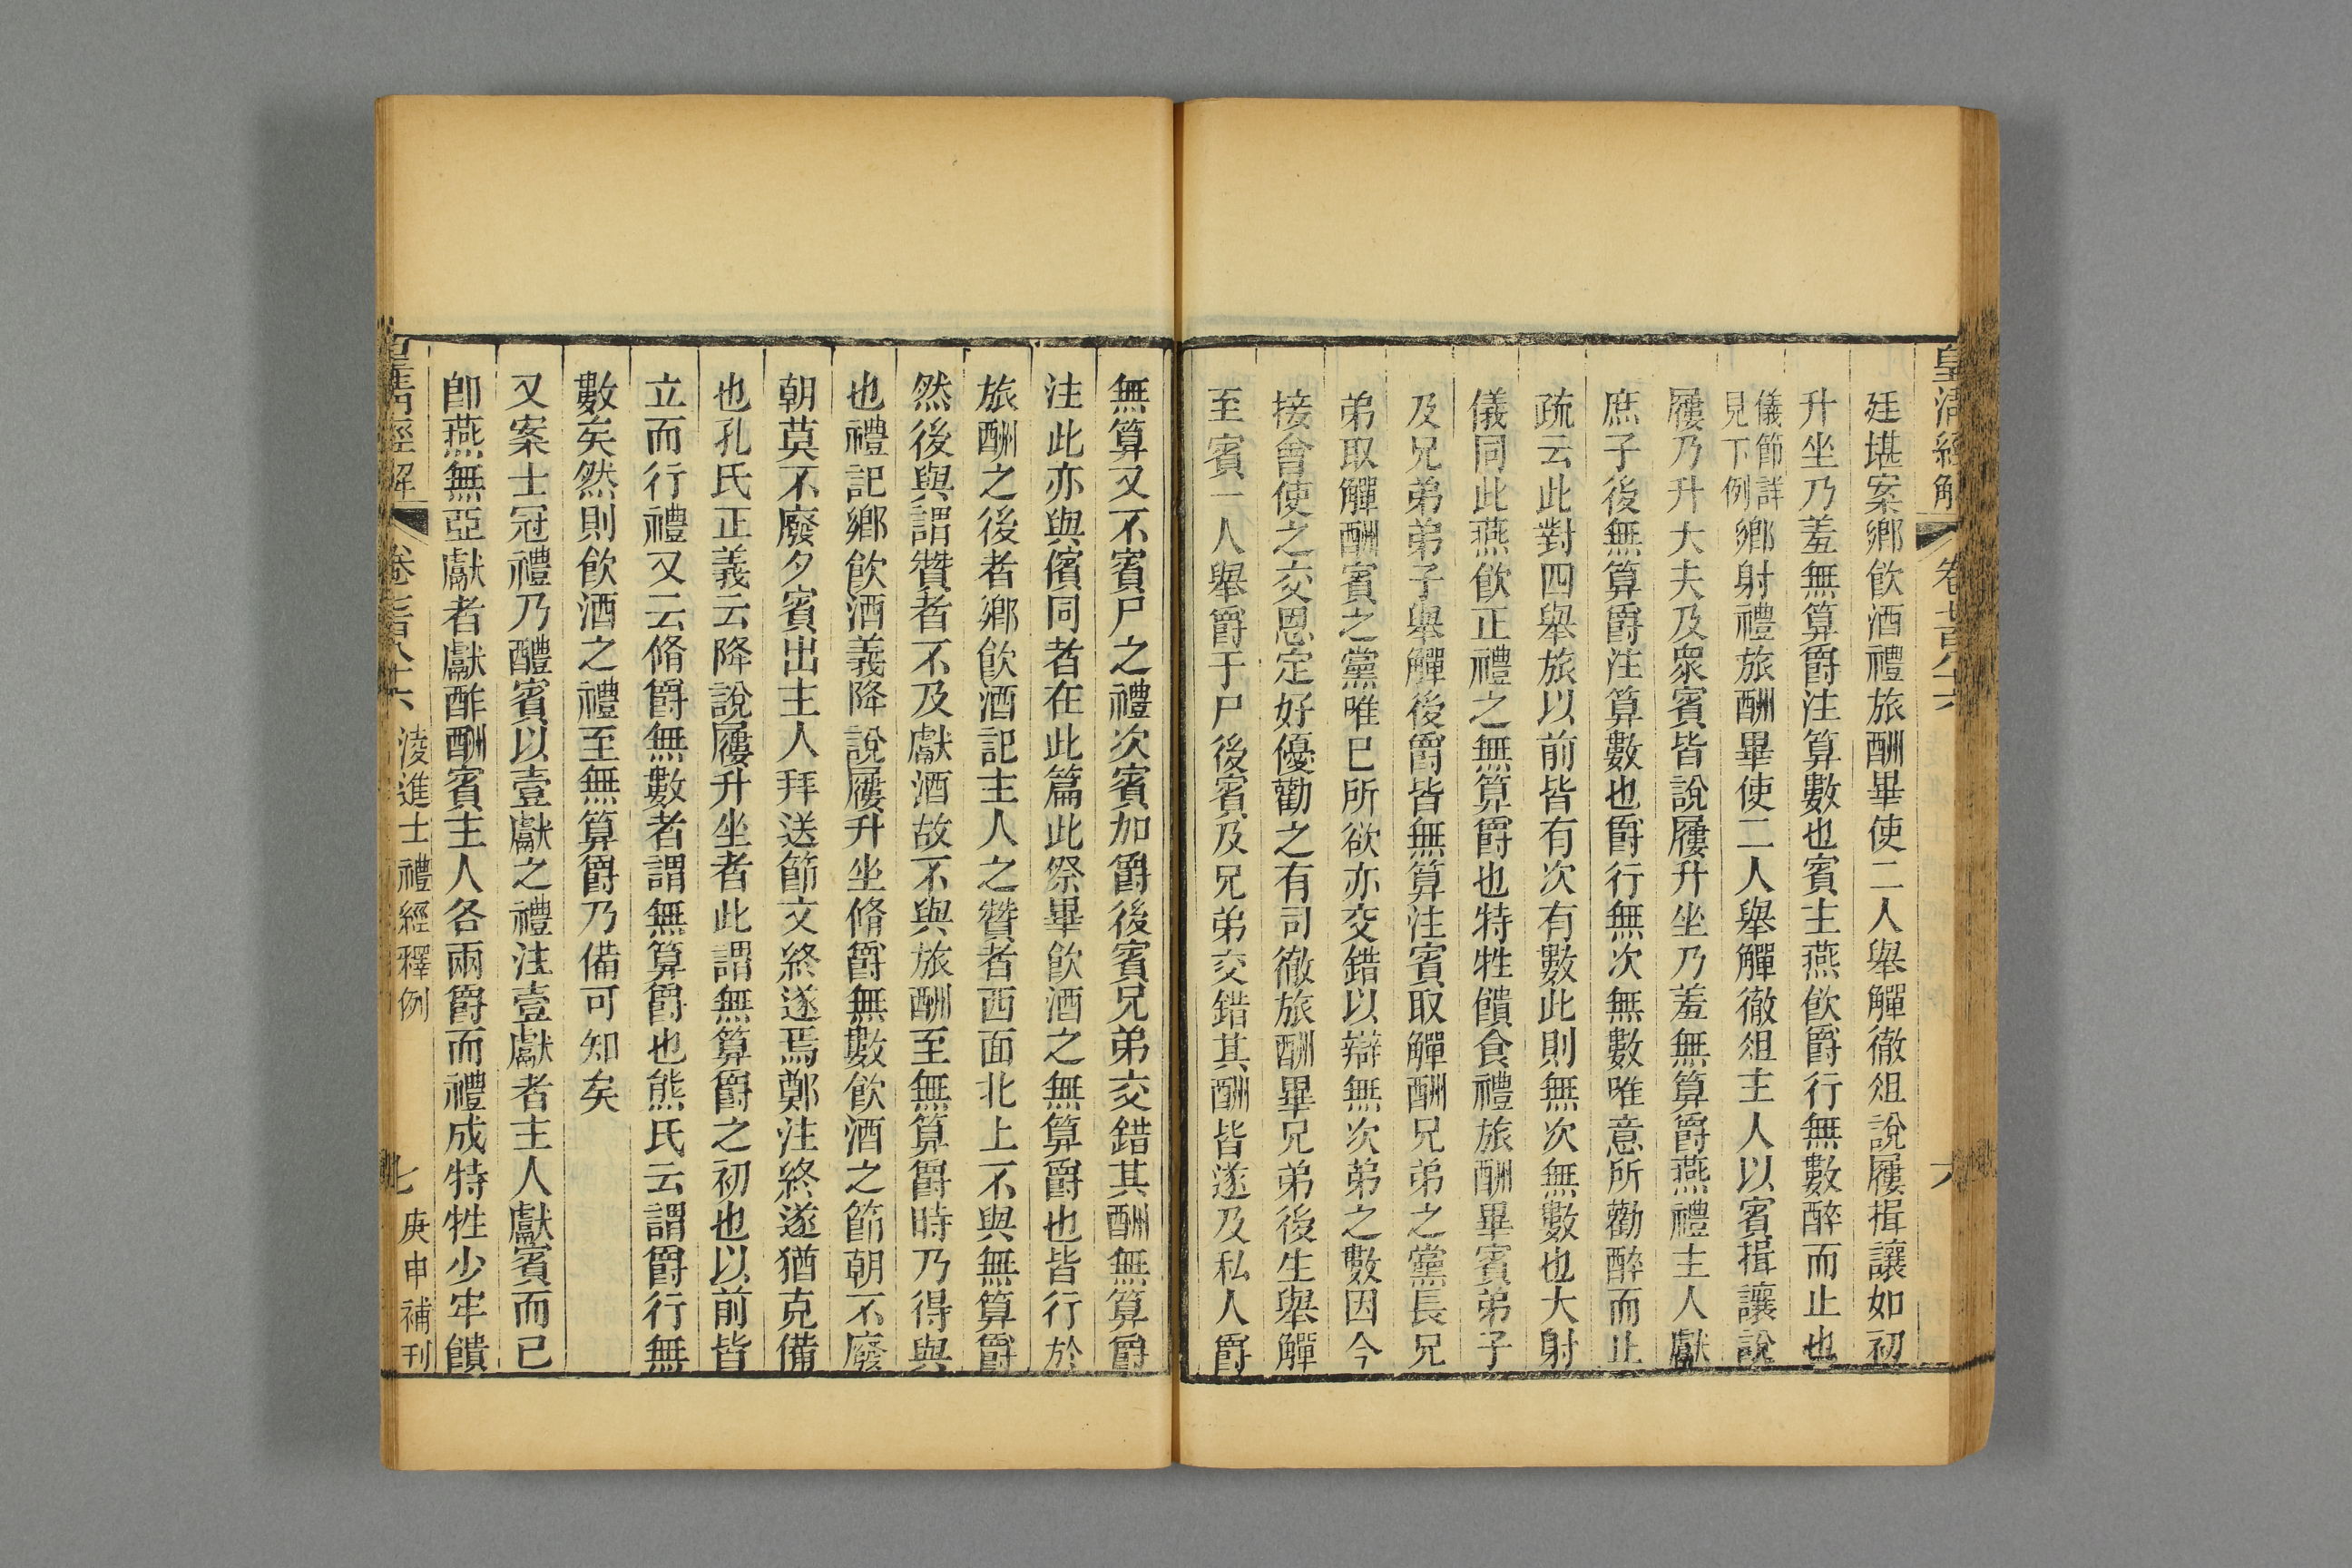 皇清經解
卷七百八十六
六
廷堪案鄉飲酒禮旅酬畢使二人舉觶徹俎說屨揖讓如初
升坐乃羞無算爵注算數也賓主燕飲爵行無數醉而止也
儀節詳
見下例
鄉射禮旅酬畢使二人舉觶徹俎主人以賓揖讓說
屨乃升大夫及眾賓皆說屨升坐乃羞無算爵燕禮主人獻
庶子後無算爵注算數也爵行無次無數唯意所勸醉而止
疏云此對四舉旅以前皆有次有數此則無次無數也大射
儀同此燕飲正禮之無算爵也特牲饋食禮旅酬畢賓弟子
及兄弟弟子舉觶後爵皆無算注賓取觶酬兄弟之黨長兄
弟取觶酬賓之黨唯已所欲亦交錯以辯無次弟之數因今
接會使之交恩定好優勸之有司徹旅酬畢兄弟後生舉觶
至賓一人舉爵于尸後賓及兄弟交錯其酬皆遂及私人爵
無算又不賓尸之禮次賓加爵後賓兄弟交錯其酬無算爵
注此亦與儐同者在此篇此祭畢飲酒之無算爵也皆行於
旅酬之後者鄉飲酒記主人之贊者西面北上不與無算爵
然後與謂贊者不及獻酒故不與旅酬至無算爵時乃得與
也禮記鄉飲酒義降說屨升坐脩爵無數飲酒之節朝不廢
朝莫不廢夕賓出主人拜送節文終遂焉鄭注終遂猶克備
也孔氏正義云降說屨升坐者此謂無算爵之初也以前皆
立而行禮又云脩爵無數者謂無算爵也熊氏云謂爵行無
數矣然則飲酒之禮至無算爵乃備可知矣
又案士冠禮乃醴賓以壹獻之禮注壹獻者主人獻賓而已
卽燕無亞獻者獻酢酬賓主人各兩爵而禮成特牲少牢饋
皇清經解
淩進士禮經釋例
七
庚申補刊